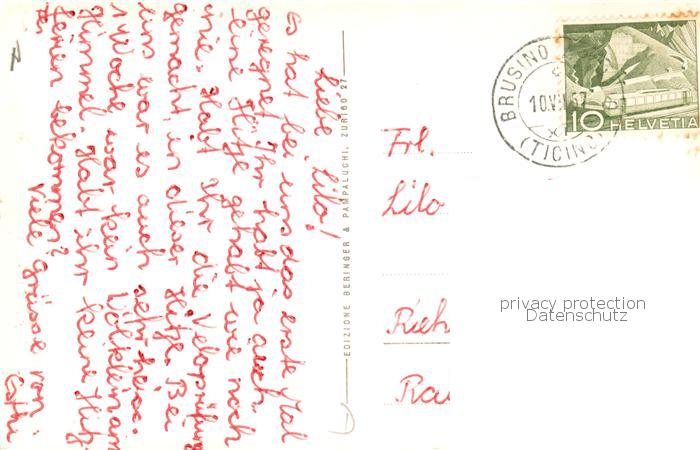 Liebe Lilo!
Es hat bei uns das erste Mal
geregnet. Ihr habt ja auch
eine Hitze gehabt wie noch
nie. Habt Ihr die Veloprüfung
gemacht, in dieser Hitze. Bei
uns war es auch sehr heiss.
1 Woche war kein Wölklein am
Himmel. Habt ihr keine Hitz-
ferien bekommen?
Viele Grüsse von
Esthi
EDIZIONE BERINGER & PAMPALUCHI, ZURIGO 27
Frl.
Lilo
Rieh
BRUSINO
10.V
(TICINO)
10 HELVETIA
privacy protection
Datenschutz